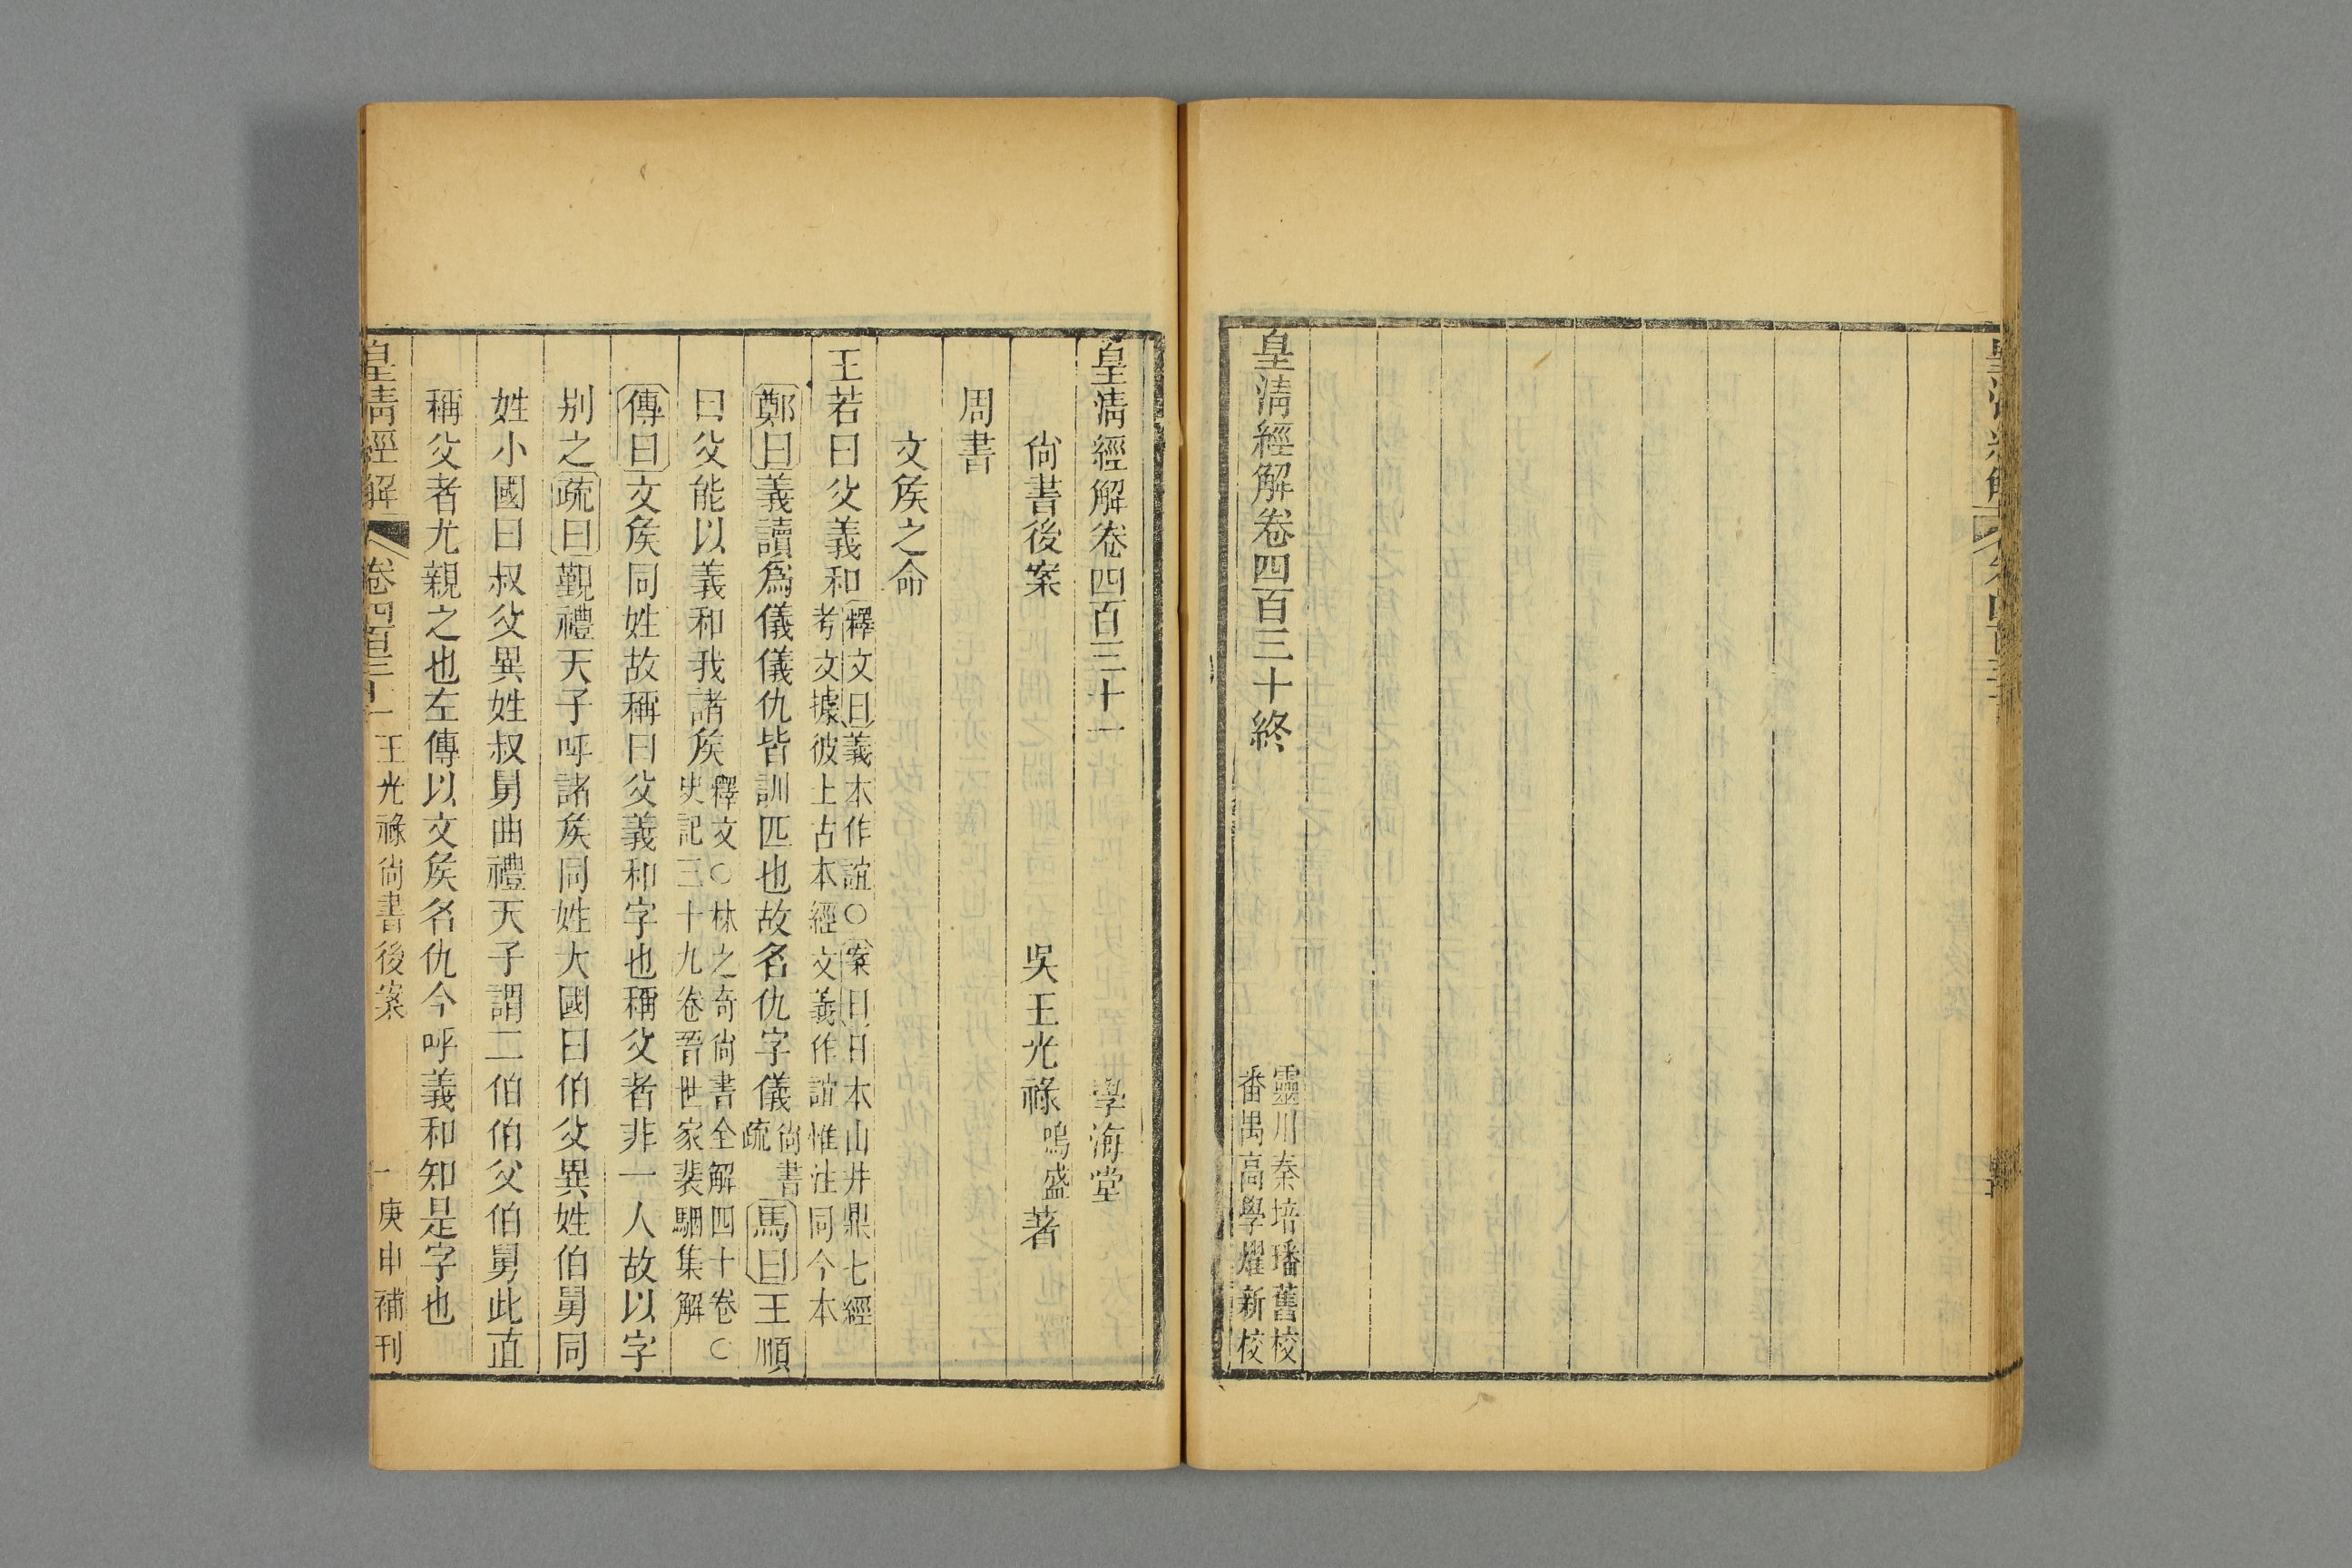 皇清經解卷四百三十終
靈川秦培璠舊校
番禺高學燿新校
皇清經解卷四百三十一 學海堂
尙書後案 吳王光祿鳴盛著
周書
文矦之命
王若曰父義和釋文曰義本作誼○案曰日本山井鼎七經
考文據彼上古本經文義作誼惟注同今本
鄭曰義讀爲儀儀仇皆訓匹也故名仇字儀尙書疏馬曰王順
曰父能以義和我諸矦釋文○林之奇尙書全解四十卷○
史記三十九卷晉世家裴駰集解
傳曰文矦同姓故稱曰父義和字也稱父者非一人故以字
别之疏曰覲禮天子呼諸矦同姓大國曰伯父異姓伯舅同
姓小國曰叔父異姓叔舅曲禮天子謂二伯伯父伯舅此直
稱父者尤親之也左傳以文矦名仇今呼義和知是字也
皇清經解 卷四百三十一 王光祿尙書後案 一 庚申補刊